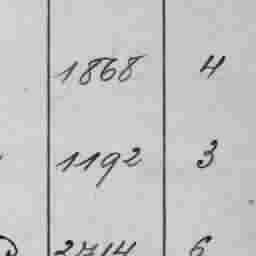 1868 4
1192 3
2714 6